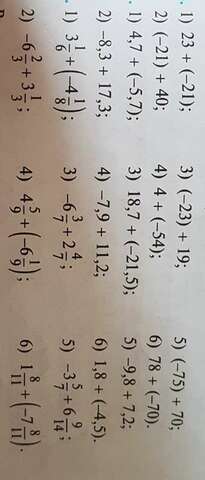 1) 23 + (−21); 3) (−23) + 19; 5) (−75) + 70;
2) (−21) + 40; 4) 4 + (−54); 6) 78 + (−70).
1) 4,7 + (−5,7); 3) 18,7 + (−21,5); 5) −9,8 + 7,2;
2) −8,3 + 17,3; 4) −7,9 + 11,2; 6) 1,8 + (−4,5).
1) 3 1/6 + (−4 1/8); 3) −6 3/7 + 2 4/7; 5) −3 5/7 + 6 9/14;
2) −6 2/3 + 3 1/3; 4) 4 5/9 + (−6 1/9); 6) 1 8/11 + (−7 8/11).